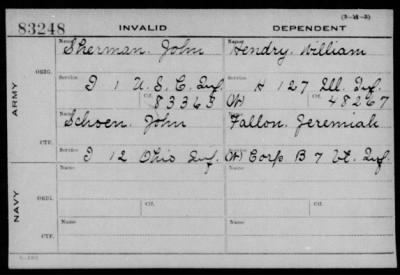 (3-M-3)
83248 INVALID DEPENDENT
Name Sherman. John Name Hendry. William
ARMY ORIG. Service I 1 U. S. C. Inf. Service H 127 Ill. Inf.
Ctf. 83363 (W) Ctf. 48267
CTF. Schoen. John Fallon. Jeremiah
I 12 Ohio Inf. (W) Corp B 7 Vt. Inf.
NAVY ORIG. Name Name
Service Ctf. Service Ctf.
CTF. Name Name